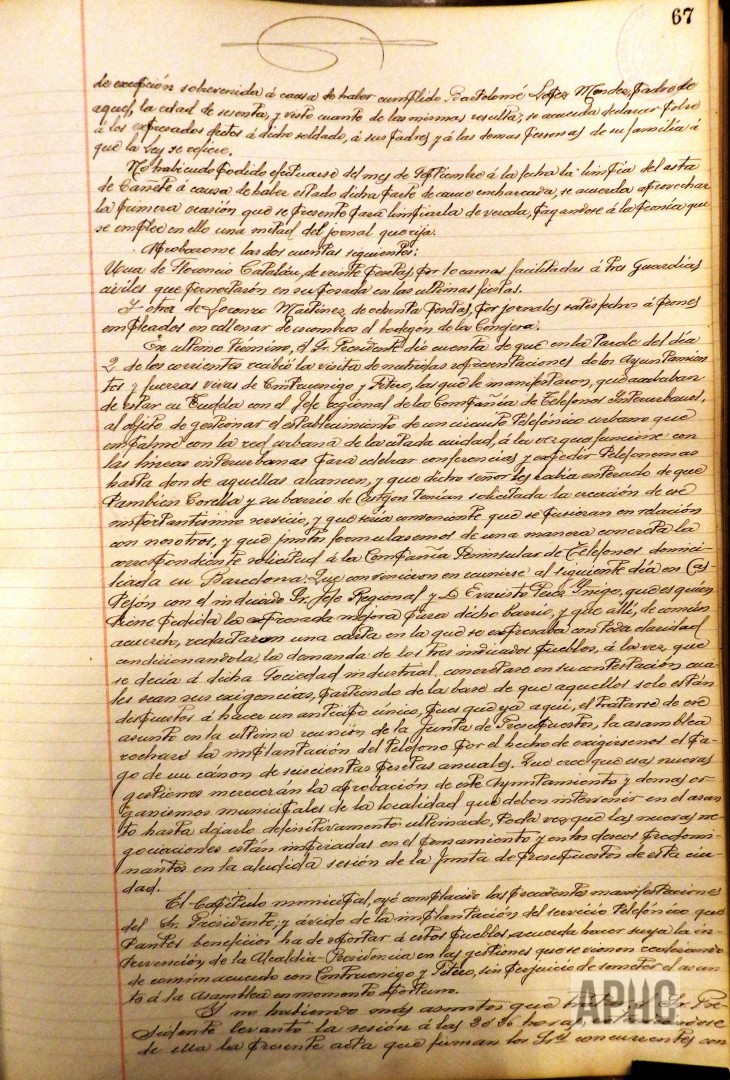 67
de excepción sobrevenida á causa de haber cumplido Bartolomé López Mendez, padre de
aquel, la edad de sesenta, y visto cuanto de las mismas resulta; se acuerda declarar pobre
á los expresados efectos á dicho soldado, á sus padres y á las demas personas de su familia á
que la Ley se refiere.
No habiendo podido efectuarse del mes de Septiembre á la fecha la limpia del
de Cañete á causa de haber estado dicha parte de cauce embarcada, se acuerda aprovechar
la primera ocasión que se presente para limpiarla de vereda, pagandose á la peonía que
se emplee en ello una mitad del jornal que rija.
Aprobaronse las dos cuentas siguientes:
Una de Florencio Catalán, de veinte pesetas, por 10 camas facilitadas á tres Guardias
civiles que pernoctaron en su posada en las ultimas fiestas.
Y otra de Lorenzo Martinez de ochenta pesetas, por jornales satisfechos á peones
empleados en rellenar de escombros el bodegón de la
En ultimo término, el Sr. Presidente dió cuenta de que en la tarde del día
2 de los corrientes recibió la visita de nutridas representaciones de los Ayuntamien-
tos y fuerzas vivas de Cintruenigo y Fitero, las que le manifestaron, que acababan
de estar en Tudela con el Jefe regional de la Compañía de Telefonos Interurbanos,
al objeto de gestionar el establecimiento de un circuito telefónico urbano que
empalme con la red urbana de la citada ciudad, á la vez que funcione con
las lineas interurbanas para celebrar conferencias y expedir telefonemas
hasta don de aquellas alcancen, y que dicho señor les habia enterado de que
tambien Corella y su barrio de Castejon tenian solicitada la creación de ese
importantisimo servicio, y que sería conveniente que se pusieran en relación
con nosotros, y que juntos formulasemos de una manera concreta la
correspondiente solicitud á la Compañia Peninsular de Telefonos domici-
liada en Barcelona. Que convinieron en reunirse al siguiente día en Cas-
tejón con el indicado Sr. Jefe Regional y D. Evaristo Perez Iñigo, que es quien
tiene pedida la expresada mejora para dicho barrio, y que allí, de común
acuerdo, redactaron una carta en la que se expresaba con toda claridad
condicionandola, la demanda de los tres indicados pueblos, á la vez que
se decia á dicha Sociedad industrial, concretase en su contestación cua-
les sean sus exigencias, partiendo de la base de que aquellos solo están
dispuestos á hacer un anticipo único, pues que ya aquí, al tratarse de ese
asunto en la ultima reunión de la Junta de Presupuestos, la asamblea
rechazó la implantación del teléfono por el hecho de exigirsenos el pa-
go de un canon de seiscientas pesetas anuales. Que cree que esas nuevas
gestiones merecerán la aprobación de este Ayuntamiento y demas or-
ganismos municipales de la localidad que deben intervenir en el asun-
to hasta dejarlo definitivamente ultimado, toda vez que las nuevas ne-
gociaciones están inspiradas en el pensamiento y en los deseos predomi-
nantes en la aludida sesión de la Junta de Presupuestos de esta ciu-
dad.
El Capítulo municipal, oyó complacido las precedentes manifestaciones
del Sr. Presidente; y ávido de la implantación del servicio telefónico que
tantos beneficios ha de reportar á estos pueblos acuerda hacer suya la in-
tervención de la Alcaldía-Presidencia en las gestiones que se vienen realizando
de comun acuerdo con Cintruenigo y Fitero, sin perjuicio de someter el asun-
to á la Asamblea en momento oportuno.
Y no habiendo más asuntos que tratar, el Sr. Pre-
sidente levantó la sesión á las horas, extendiendose
de ella la presente acta que firman los Sres. concurrentes con
APHC